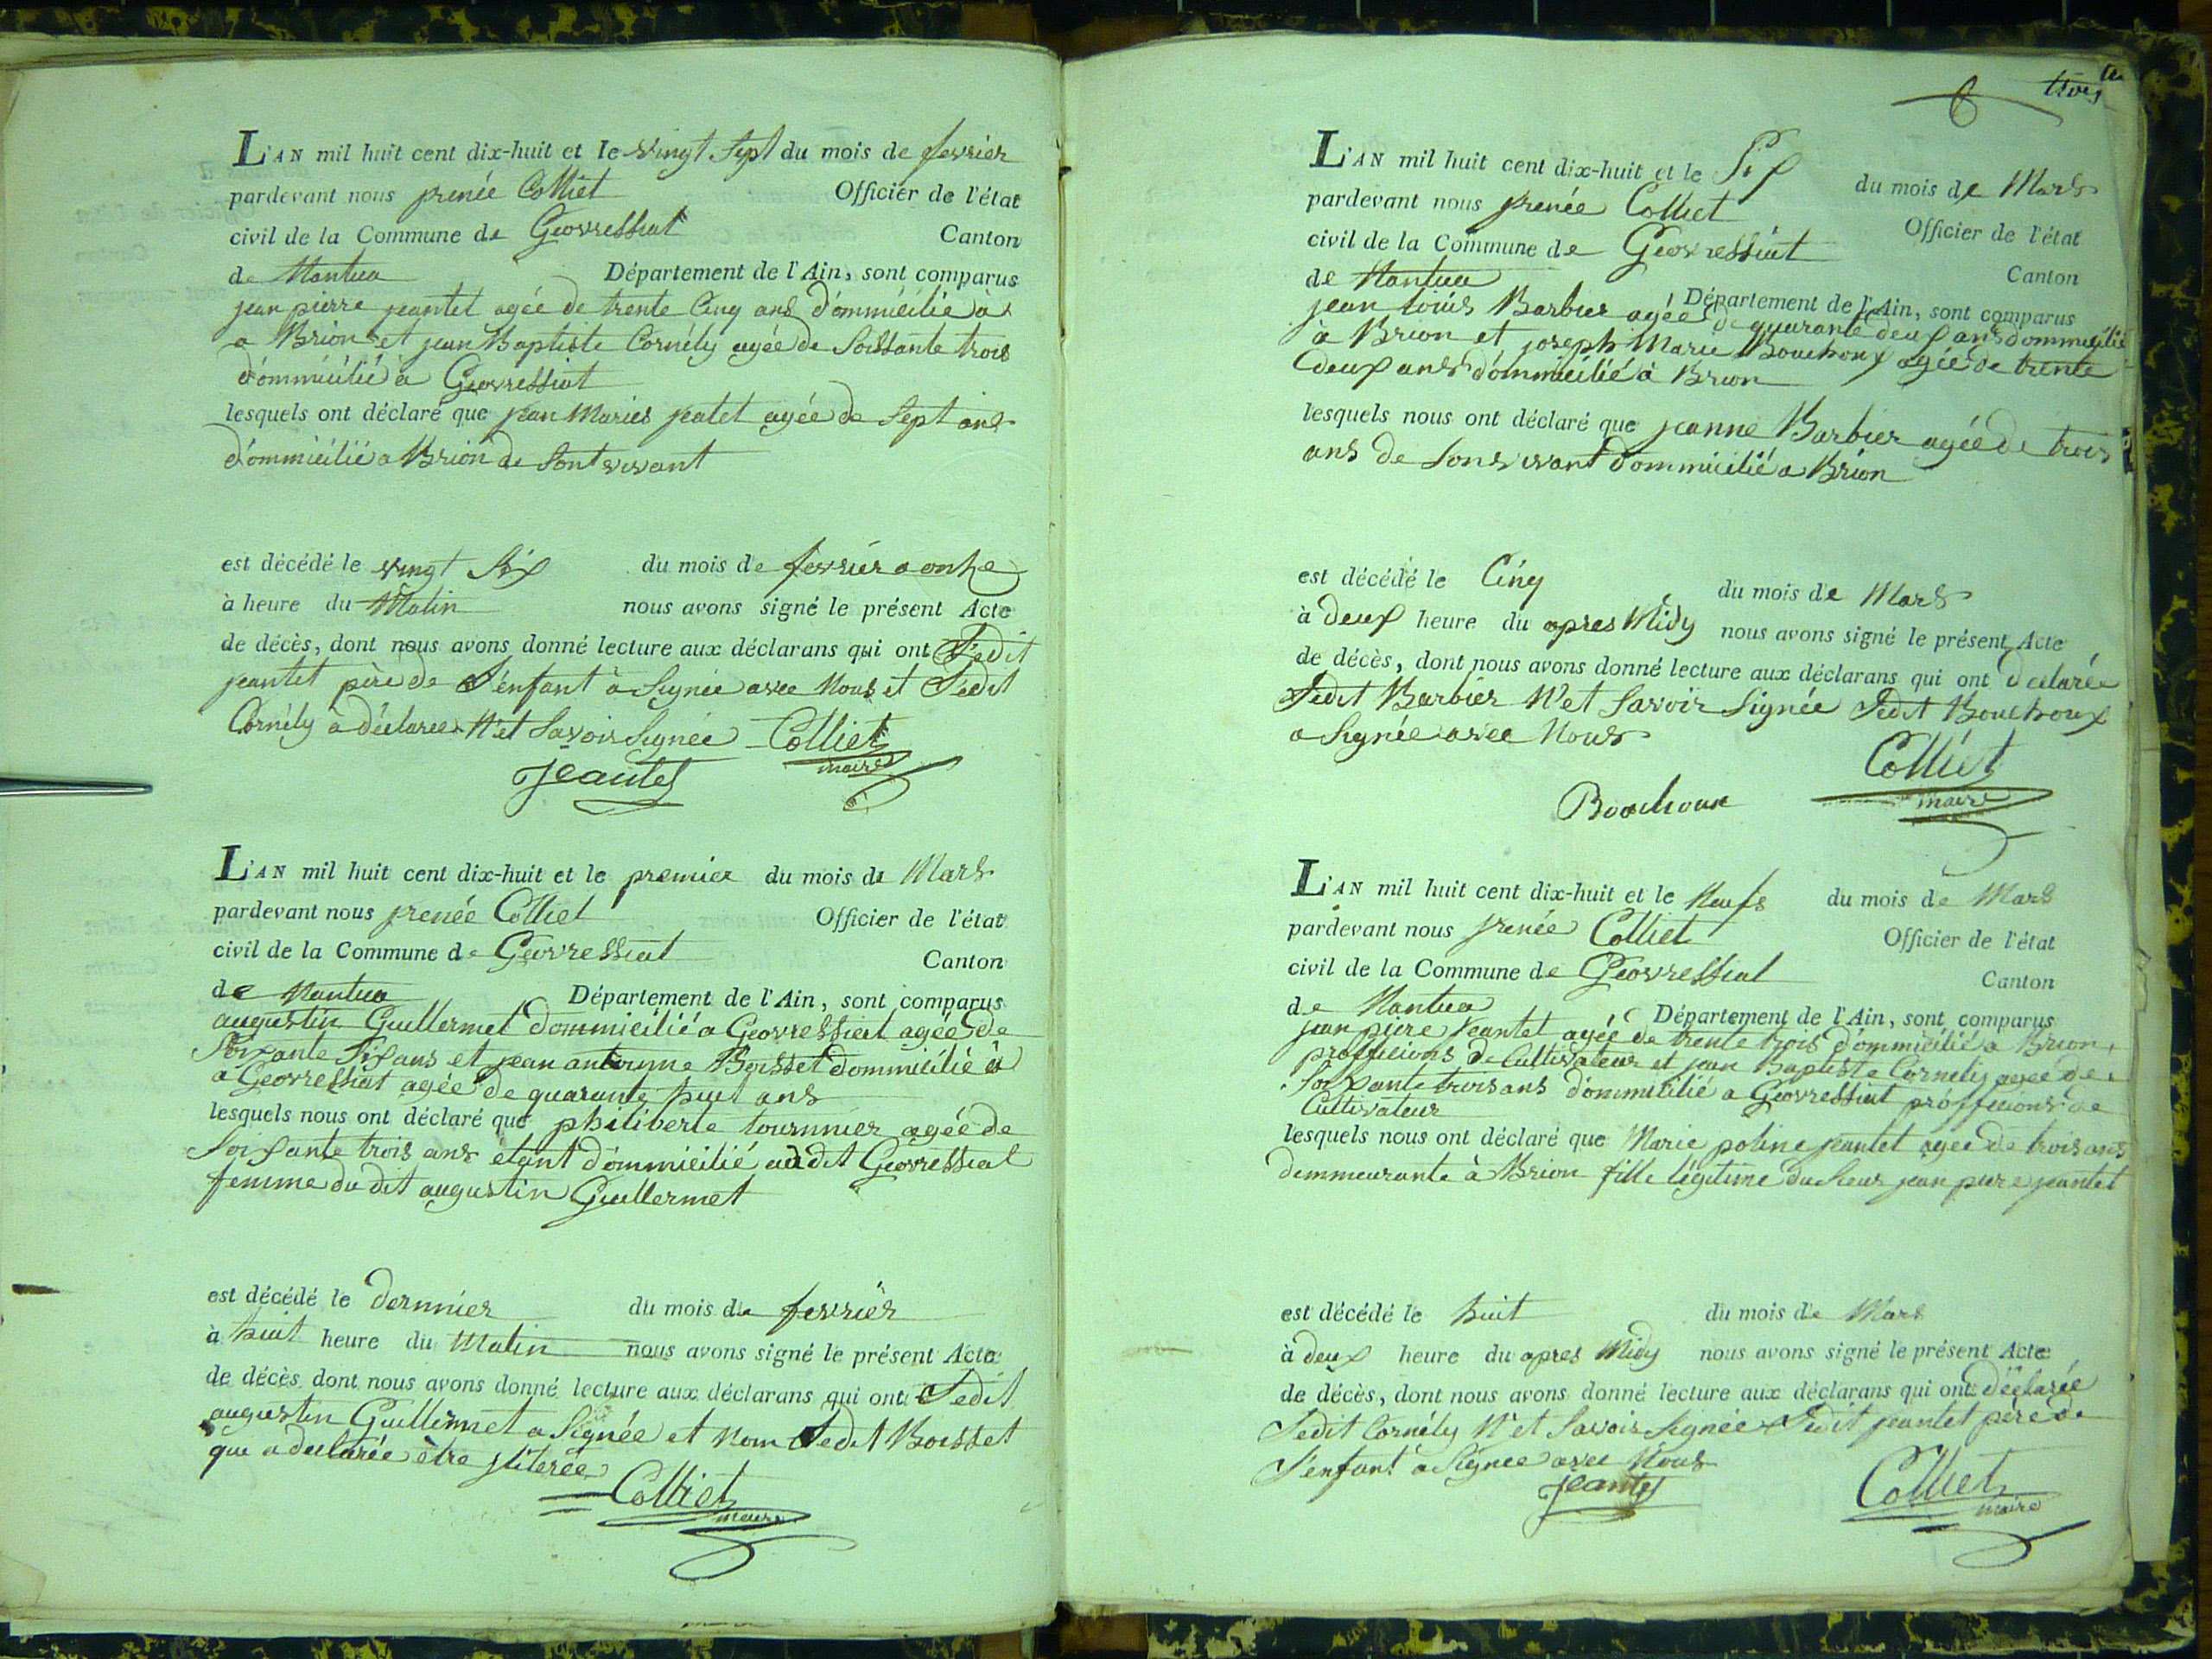 L'AN mil huit cent dix-huit et le vingt sept du mois de fevrier
pardevant nous prenée Colliet Officier de l'état
civil de la Commune de Geovressiat Canton
de Nantua Département de l'Ain, sont comparus
jean pierre jeantet agée de trente Cinq ans d'ommicilié à
a Brion et jean Baptiste Cornély agée de Soissante trois
d'ommicilié à Geovressiat
lesquels ont déclaré que jean Maries jeatet agée de Sept ans
d'ommicilié a Brion de Sont vivant
est décédé le vingt Six du mois de fevrier a onhe
à heure du Matin nous avons signé le présent Acte
de décès, dont nous avons donné lecture aux déclarans qui ont Ledit
jeantet père de L'enfant à Signée avec Nous et Ledit
Cornély a déclaree N'et Savoir Signée Colliet
maire
Jeantet
L'AN mil huit cent dix-huit et le premier du mois de Mars
pardevant nous prenée Colliet Officier de l'état
civil de la Commune de Geovressiat Canton
de Nantua Département de l'Ain, sont comparus
augustin Guillermet dommicilié a Geovressiat agée de
Soixante Six ans et jean antoynne Boisset dommicilié à
a Geovressiat agée de quarante huit ans
lesquels nous ont déclaré que philiberte tournnier agée de
Soixante trois ans étant d'ommicilié audit Geovressiat
femme du dit augustin Guillermet
est décédé le dernnier du mois de fevrier
à huit heure du Matin nous avons signé le présent Acte
de décès dont nous avons donné lecture aux déclarans qui ont Ledit
augustin Guillermet a Signée et nom Ledit Boisset
que a declarée être jliterée
Colliet
maire
6 trois
L'AN mil huit cent dix-huit et le Six du mois de Mars
pardevant nous prenée Colliet Officier de l'état
civil de la Commune de Geovressiat Canton
de Nantua Département de l'Ain, sont comparus
jean louis Barbier agée de quarante deux ans dommicilié
à Brion et joseph Marie Bouchoux agée de trente
deux ans d'ommicilié à Brion
lesquels nous ont déclaré que jeanne Barbier agée de trois
ans de Sons vivant dommicilié a Brion
est décédé le Cinq du mois de Mars
à deux heure du apres Midy nous avons signé le présent Acte
de décès, dont nous avons donné lecture aux déclarans qui ont declarée
Ledit Barbier N'et Savoir Signée Ledit Bouchoux
a Signée avec Nous
Colliet
maire
Bouchoux
L'AN mil huit cent dix-huit et le Neufs du mois de Mars
pardevant nous prenée Colliet Officier de l'état
civil de la Commune de Geovressiat Canton
de Nantua Département de l'Ain, sont comparus
jean piere jeantet agée de trente trois d'ommicilié a Brion,
proffecions de Cultivateur et jean Baptiste Cornely agée de
Soixante trois ans d'ommicilié a Geovressiat proffecions de
Cultivateur
lesquels nous ont déclaré que Marie poline jeantet agee de trois ans
demmeurante à Brion fille légitime du Sieur jean piere jeantet
est décédé le huit du mois de Mars
à deux heure du apres Midy nous avons signé le présent Acte
de décès, dont nous avons donné lecture aux déclarans qui ont déclarée
Ledit Cornély N'et Savoir Signée Ledit jeantet père de
L'enfant à Signee avec Nous
Jeantet
Colliet
maire